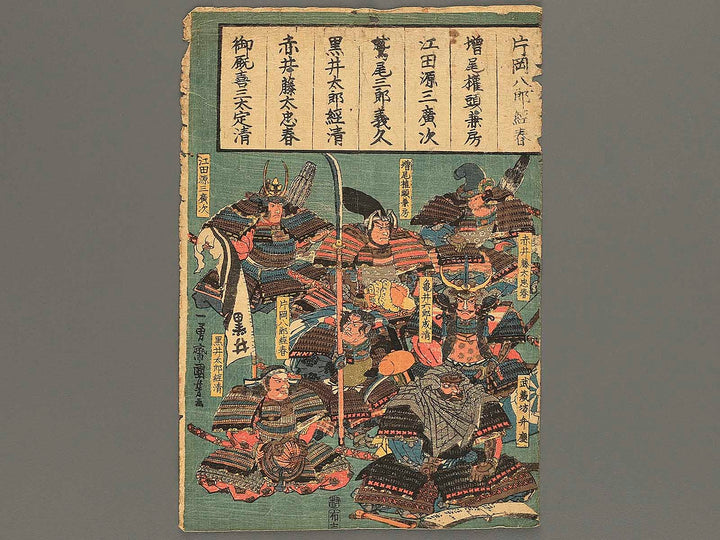 片岡八郎經春
増尾權頭兼房
江田源三廣次
鷲尾三郎義久
黒井太郎經清
赤井藤太忠春
御厩喜三太定清
増尾権頭兼房
江田源三廣次
赤井藤太忠春
亀井六郎成清
片岡八郎経春
黒井
黒井太郎経清
武蔵坊弁慶
一勇齋國芳画